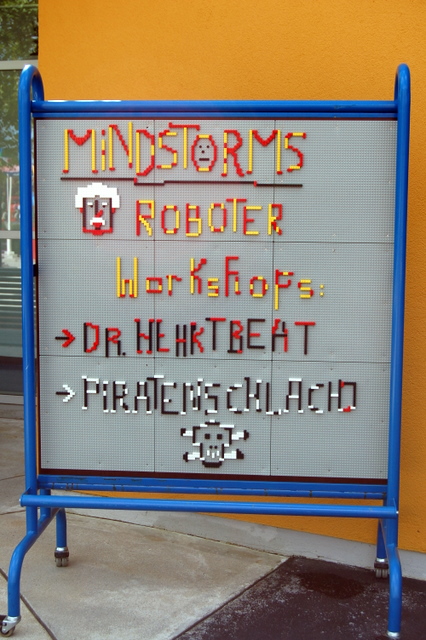 MiNDSTORMS
ROBOTER
Workshops:
→ DR. HEARTBEAT
→ PIRATENSCHLACH